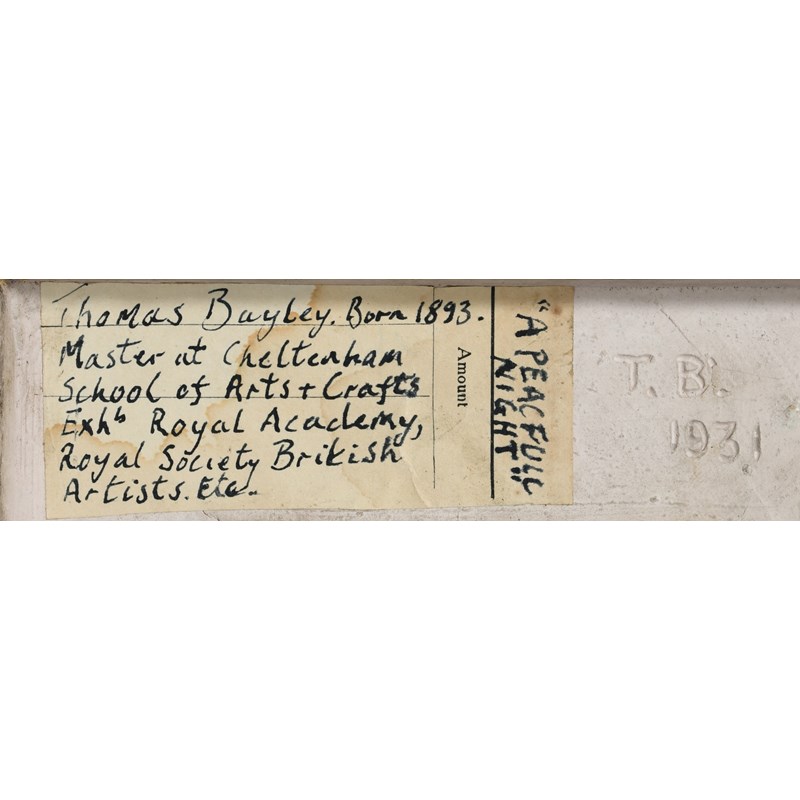 Thomas Bayley. Born 1893.
Master at Cheltenham
School of Arts + Crafts
Exhb Royal Academy,
Royal Society British
Artists. Etc.
Amount
"A PEACFULL
NIGHT"
T. B.
1931